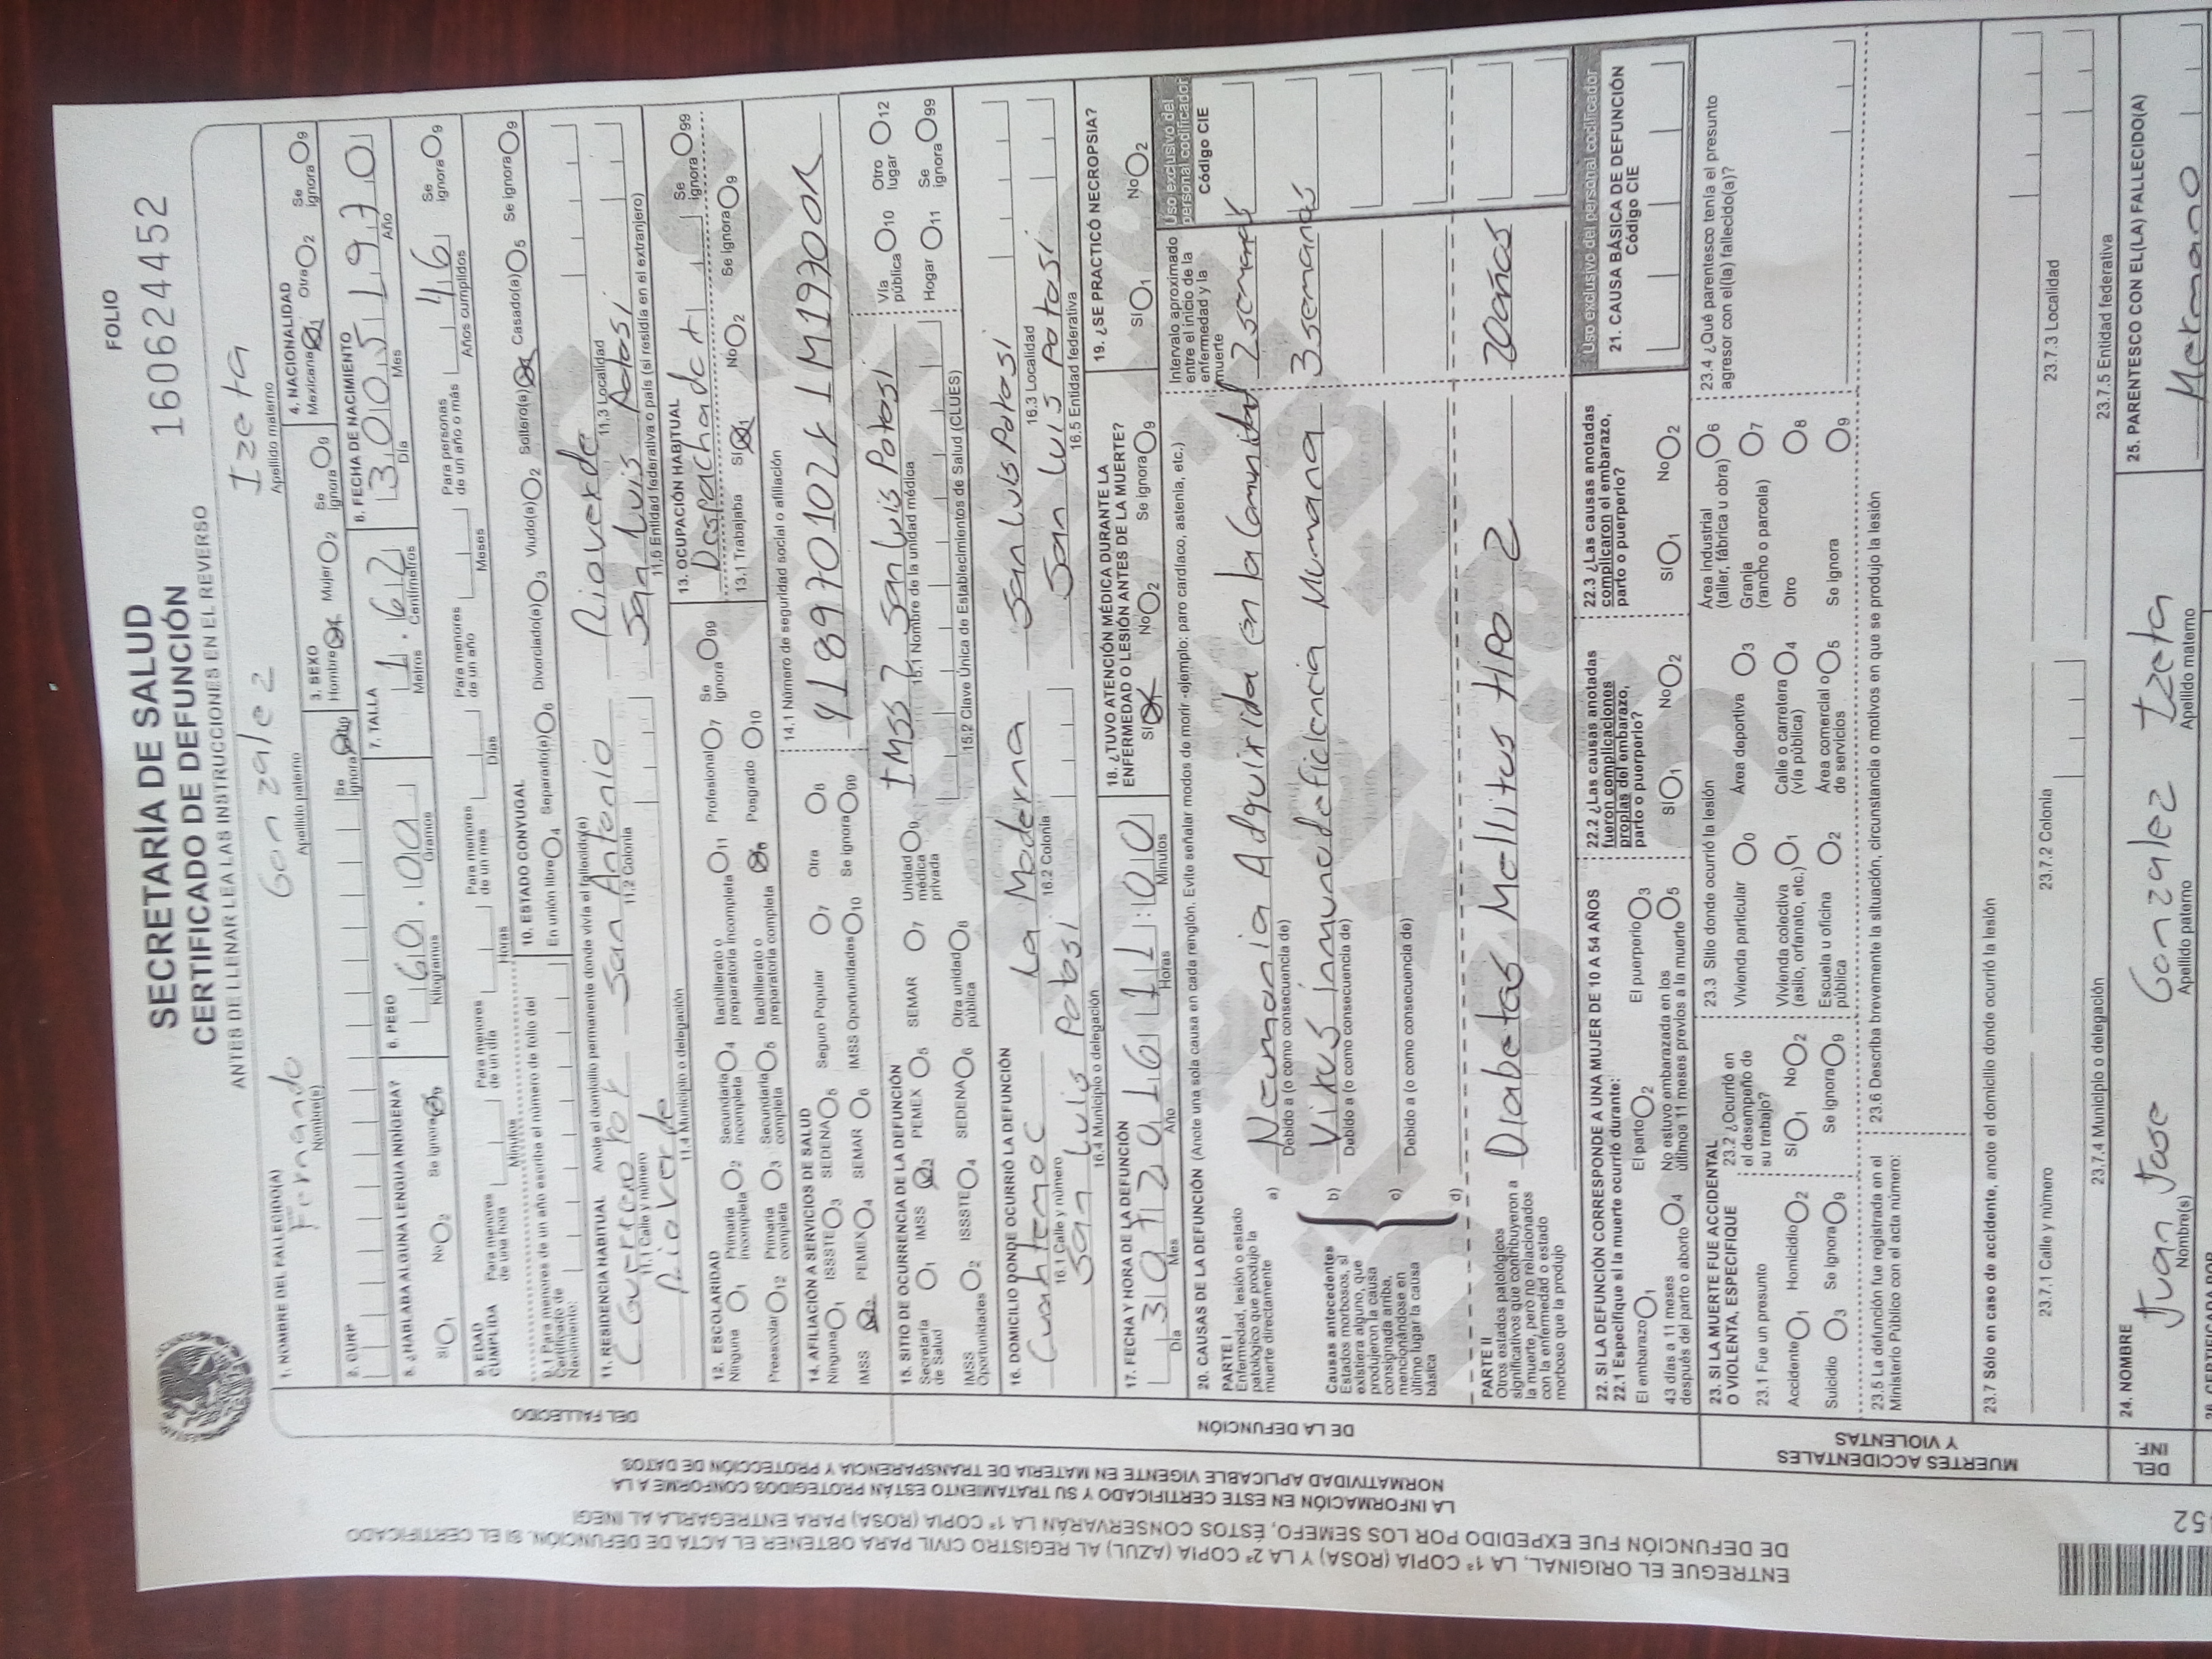 FOLIO
160624452
SECRETARÍA DE SALUD
CERTIFICADO DE DEFUNCIÓN
ANTES DE LLENAR LEA LAS INSTRUCCIONES EN EL REVERSO
1. NOMBRE DEL FALLECIDO(A)
Fernando Gonzalez Izeta
Nombre(s) Apellido paterno Apellido materno
2. CURP Se ignora
3. SEXO Hombre Mujer 2 Se ignora 9
4. NACIONALIDAD Mexicana 1 Otra 2 Se ignora 9
5. ¿HABLABA ALGUNA LENGUA INDÍGENA?
SI 1 No 2 Se ignora
6. PESO 60.00
Kilogramos Gramos
7. TALLA 1.62
Metros Centímetros
8. FECHA DE NACIMIENTO 30 05 1970
Día Mes Año
9. EDAD CUMPLIDA
Para menores de una hora Minutos
Para menores de un día Horas
Para menores de un mes Días
Para menores de un año Meses
Para personas de un año o más 46 Años cumplidos
Se ignora 9
9.1 Para menores de un año escriba el número de folio del Certificado de Nacimiento:
10. ESTADO CONYUGAL
En unión libre 4 Separado(a) 6 Divorciado(a) 3 Viudo(a) 2 Soltero(a) Casado(a) 5 Se ignora 9
11. RESIDENCIA HABITUAL Anote el domicilio permanente donde vivía el fallecido(a)
San Antonio Rioverde
11.1 Calle y número 11.2 Colonia 11.3 Localidad
Rioverde San Luis Potosi
11.4 Municipio o delegación 11.5 Entidad federativa o país (si residía en el extranjero)
12. ESCOLARIDAD
Ninguna 1 Primaria incompleta 2 Secundaria incompleta 4 Bachillerato o preparatoria incompleta 11 Profesional 7 Se ignora 99
Preescolar 12 Primaria completa 3 Secundaria completa 5 Bachillerato o preparatoria completa Posgrado 10
13. OCUPACIÓN HABITUAL
Despachador Se ignora 99
13.1 Trabajaba SI 1 No 2 Se ignora 9
14. AFILIACIÓN A SERVICIOS DE SALUD
Ninguna 1 ISSSTE 3 SEDENA 5 Seguro Popular 7 Otra 8
IMSS PEMEX 4 SEMAR 6 IMSS Oportunidades 10 Se ignora 99
14.1 Número de seguridad social o afiliación
15. SITIO DE OCURRENCIA DE LA DEFUNCIÓN
Secretaría de Salud 1 IMSS 3 PEMEX 5 SEMAR 7 Unidad médica privada 9
IMSS Oportunidades 2 ISSSTE 4 SEDENA 6 Otra unidad pública 8
IMSS 7 San Luis Potosi
15.1 Nombre de la unidad médica
15.2 Clave Única de Establecimientos de Salud (CLUES)
Vía pública 10 Otro lugar 12
Hogar 11 Se ignora 99
16. DOMICILIO DONDE OCURRIÓ LA DEFUNCIÓN
Cuauhtemoc La Moderna San Luis Potosi
16.1 Calle y número 16.2 Colonia 16.3 Localidad
San Luis Potosi San Luis Potosi
16.4 Municipio o delegación 16.5 Entidad federativa
17. FECHA Y HORA DE LA DEFUNCIÓN
30 07 2016 11:00
Día Mes Año Horas Minutos
18. ¿TUVO ATENCIÓN MÉDICA DURANTE LA ENFERMEDAD O LESIÓN ANTES DE LA MUERTE?
SI No 2 Se ignora 9
19. ¿SE PRACTICÓ NECROPSIA?
SI 1 No 2
20. CAUSAS DE LA DEFUNCIÓN (Anote una sola causa en cada renglón. Evite señalar modos de morir -ejemplo: paro cardíaco, astenia, etc.)
Intervalo aproximado entre el inicio de la enfermedad y la muerte
Uso exclusivo del personal codificador
Código CIE
PARTE I
Enfermedad, lesión o estado patológico que produjo la muerte directamente
a) Neumonia Adquirida en la Comunidad 2 semanas
Debido a (o como consecuencia de)
Causas antecedentes
Estados morbosos, si existiera alguno, que produjeron la causa consignada arriba, mencionándose en último lugar la causa básica
b) Virus inmunodeficiencia Humana 3 semanas
Debido a (o como consecuencia de)
c)
Debido a (o como consecuencia de)
d)
PARTE II
Otros estados patológicos significativos que contribuyeron a la muerte, pero no relacionados con la enfermedad o estado morboso que la produjo
Diabetes Mellitus tipo 2 20años
Uso exclusivo del personal codificador
21. CAUSA BÁSICA DE DEFUNCIÓN
Código CIE
22. SI LA DEFUNCIÓN CORRESPONDE A UNA MUJER DE 10 A 54 AÑOS
22.1 Especifique si la muerte ocurrió durante:
El embarazo 1 El parto 2 El puerperio 3
43 días a 11 meses después del parto o aborto 4 No estuvo embarazada en los últimos 11 meses previos a la muerte 5
22.2 ¿Las causas anotadas fueron complicaciones propias del embarazo, parto o puerperio?
SI 1 No 2
22.3 ¿Las causas anotadas complicaron el embarazo, parto o puerperio?
SI 1 No 2
23. SI LA MUERTE FUE ACCIDENTAL O VIOLENTA, ESPECIFIQUE
23.1 Fue un presunto
Accidente 1 Homicidio 2
Suicidio 3 Se ignora 9
23.2 ¿Ocurrió en el desempeño de su trabajo?
SI 1 No 2
Se ignora 9
23.3 Sitio donde ocurrió la lesión
Vivienda particular 0 Área deportiva 3 Área industrial (taller, fábrica u obra) 6
Vivienda colectiva (asilo, orfanato, etc.) 1 Calle o carretera (vía pública) 4 Granja (rancho o parcela) 7
Escuela u oficina pública 2 Área comercial o de servicios 5 Otro 8
Se ignora 9
23.4 ¿Qué parentesco tenía el presunto agresor con el(la) fallecido(a)?
23.5 La defunción fue registrada en el Ministerio Público con el acta número:
23.6 Describa brevemente la situación, circunstancia o motivos en que se produjo la lesión
23.7 Sólo en caso de accidente, anote el domicilio donde ocurrió la lesión
23.7.1 Calle y número 23.7.2 Colonia 23.7.3 Localidad
23.7.4 Municipio o delegación 23.7.5 Entidad federativa
24. NOMBRE
Juan Jose Gonzalez Izeta
Nombre(s) Apellido paterno Apellido materno
25. PARENTESCO CON EL(LA) FALLECIDO(A)
Hermano
DEL FALLECIDO
DE LA DEFUNCIÓN
MUERTES ACCIDENTALES Y VIOLENTAS
DEL INF.
ENTREGUE EL ORIGINAL, LA 1ª COPIA (ROSA) Y LA 2ª COPIA (AZUL) AL REGISTRO CIVIL PARA OBTENER EL ACTA DE DEFUNCIÓN. SI EL CERTIFICADO
DE DEFUNCIÓN FUE EXPEDIDO POR LOS SEMEFO, ÉSTOS CONSERVARÁN LA 1ª COPIA (ROSA) PARA ENTREGARLA AL INEGI
LA INFORMACIÓN EN ESTE CERTIFICADO Y SU TRATAMIENTO ESTÁN PROTEGIDOS CONFORME A LA
NORMATIVIDAD APLICABLE VIGENTE EN MATERIA DE TRANSPARENCIA Y PROTECCIÓN DE DATOS